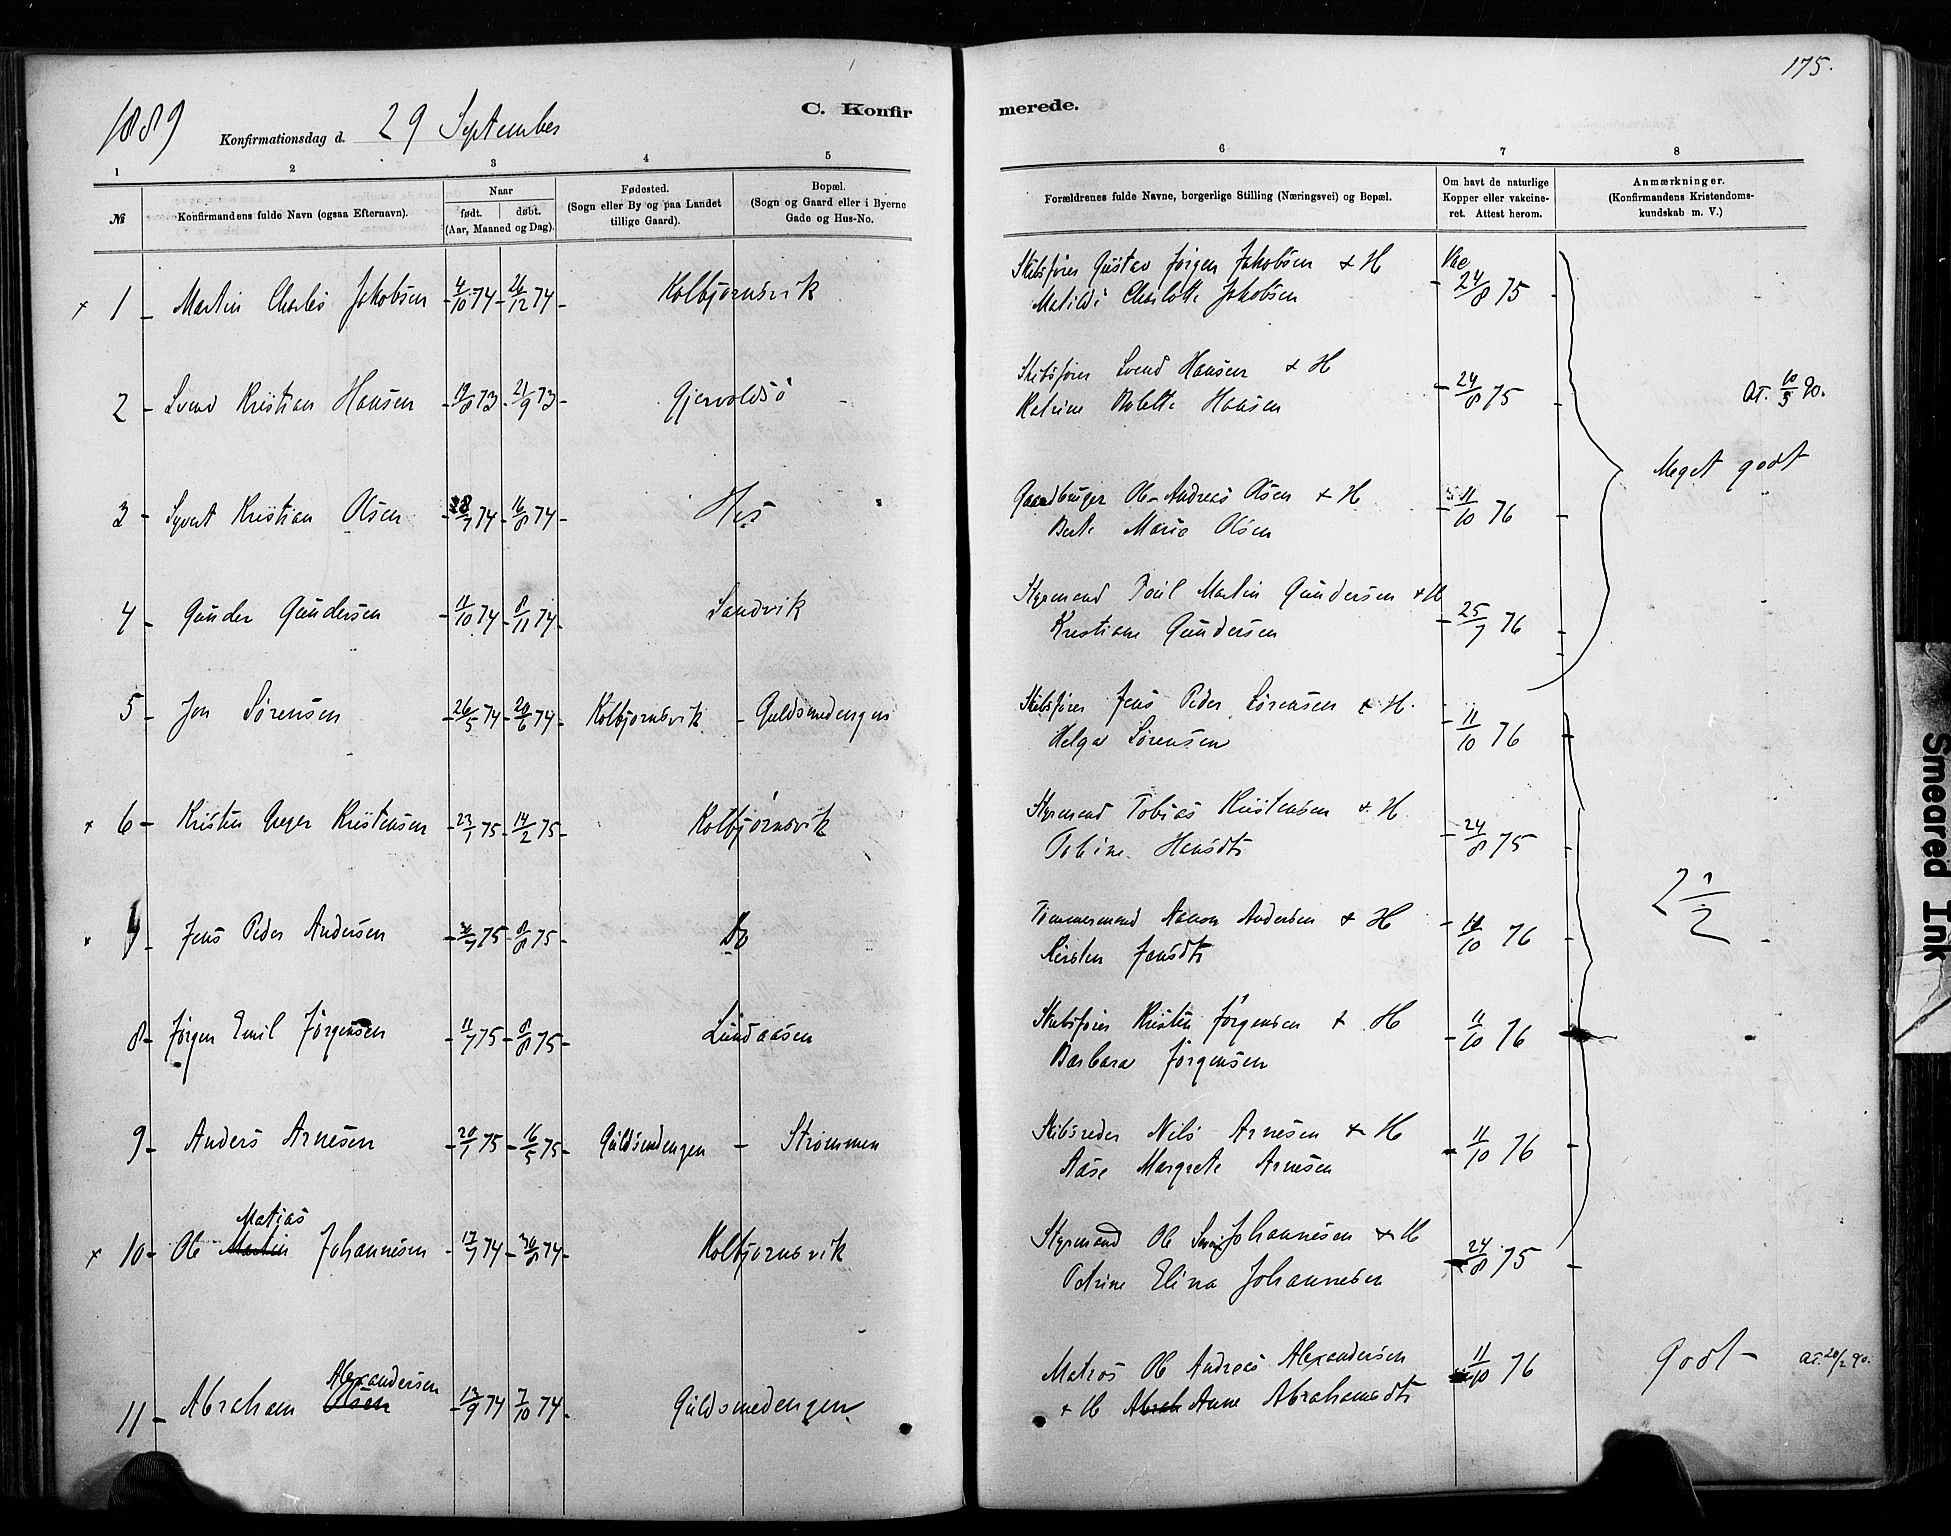 175.
1889
C. Konfir
merede.
Konfirmationsdag d. 29 September
1 2 3 4 5 6 7 8
№
Konfirmandens fulde Navn (ogsaa Efternavn).
Naar
født. døbt.
(Aar, Maaned og Dag).
Fødested.
(Sogn eller By og paa Landet
tillige Gaard).
Bopæl.
(Sogn og Gaard eller i Byerne
Gade og Hus-No.
Forældrenes fulde Navne, borgerlige Stilling (Næringsvei) og Bopæl.
Om havt de naturlige
Kopper eller vakcine-
ret. Attest herom.
Anmærkninger.
(Konfirmandens Kristendoms-
kundskab m. V.)
× 1 Martin Charles Jakobsen 4/10 74 26/12 74 Kolbjørnsvik
Skibsfører Gustav Jørgen Jakobsen & H
Matilde Charlotte Jakobsen
Vac 24/8 75
2 Svend Kristian Hansen 19/8 73 21/9 73 Gjervoldsø
Skibsfører Svend Hansen & H
Katrine Bolette Hansen
24/8 75
at. 10/5 90.
Meget godt
3 Syvert Kristian Olsen 28/7 74 16/8 74 His
Gaardbruger Ole Andreas Olsen & H
Berte Marie Olsen
11/10 76
4 Gunder Gundersen 11/10 74 8/11 74 Sandvik
Styrmand Poul Martin Gundersen & H
Kristiane Gundersen
25/7 76
5 Jon Sørensen 26/5 74 20/6 74 Kolbjørnsvik - Guldsmedengen
Skibsfører Jens Peder Sørensen & H.
Helga Sørensen
11/10 76
× 6 Kristen Greger Kristensen 23/1 75 14/2 75 Kolbjørnsvik
Styrmand Tobias Kristensen & H.
Tobine Hansdt
24/8 75
2 1/2
× 7 Jens Peder Andersen 75 8/8 75 Do
Tømmermand Andersen & H
Kirsten Jensdt
11/10 76
8 Jørgen Emil Jørgensen 11/7 75 8/8 75 Lundaasen
Skibsfører Kristen Jørgensen & H
Barbara Jørgensen
11/10 76
9 Anders Arnesen 20/1 75 16/5 75 Guldsmedengen - Strømmen
Skibsreder Nils Arnesen & H
Aase Margrete Arnesen
11/10 76
Matias
× 10 Ole Martin Johannesen 17/7 74 30/8 74 Kolbjørnsvik
Styrmand Ole Johannesen & H
Petrine Elina Johannesen
24/8 75
Alexandersen
11 Abraham Olsen 13/9 74 7/10 74 Guldsmedengen
Matros Ole Andreas Alexandersen
& H Abrah Anne Abrahamsdt
11/10 76
Godt
at. 20/2 90.
Smeared Ink